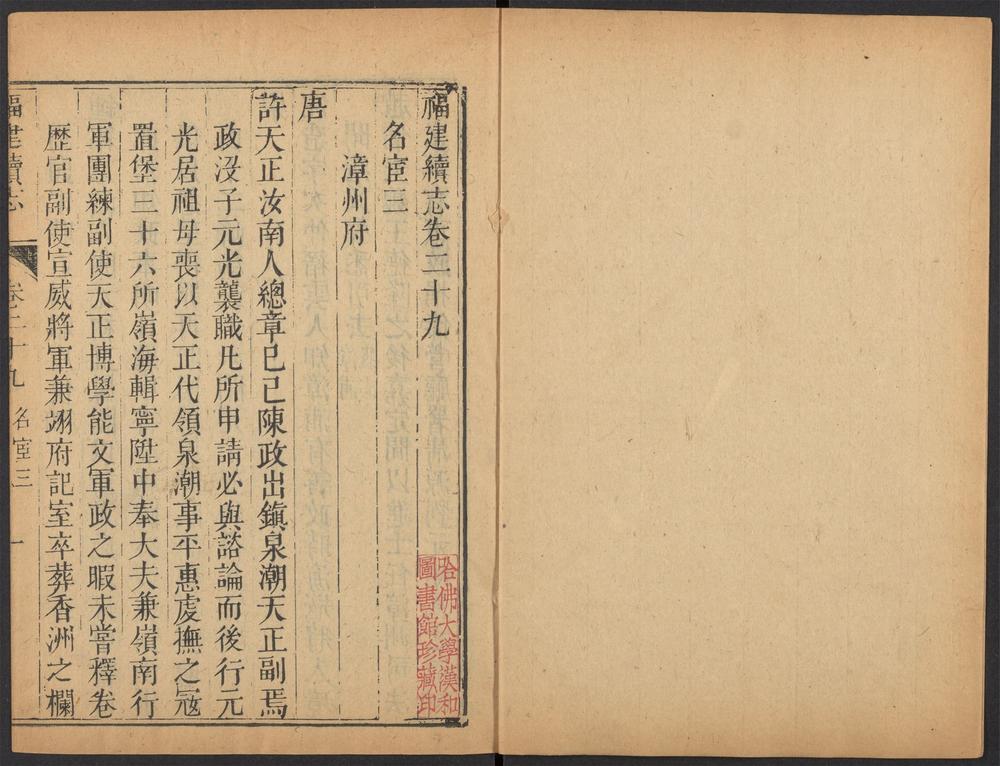 福建續志卷二十九
名宦三
漳州府
唐
許天正汝南人總章己巳陳政出鎮泉潮天正副焉
政沒子元光襲職凡所申請必與諮論而後行元
光居祖母喪以天正代領泉潮事平惠虔撫之冦
置堡三十六所嶺海輯寧陞中奉大夫兼嶺南行
軍團練副使天正博學能文軍政之暇未嘗釋卷
歷官副使宣威將軍兼翊府記室卒葬香洲之欄
福建續志 卷二十九 名宦三 一
哈佛大學漢和
圖書館珍藏印